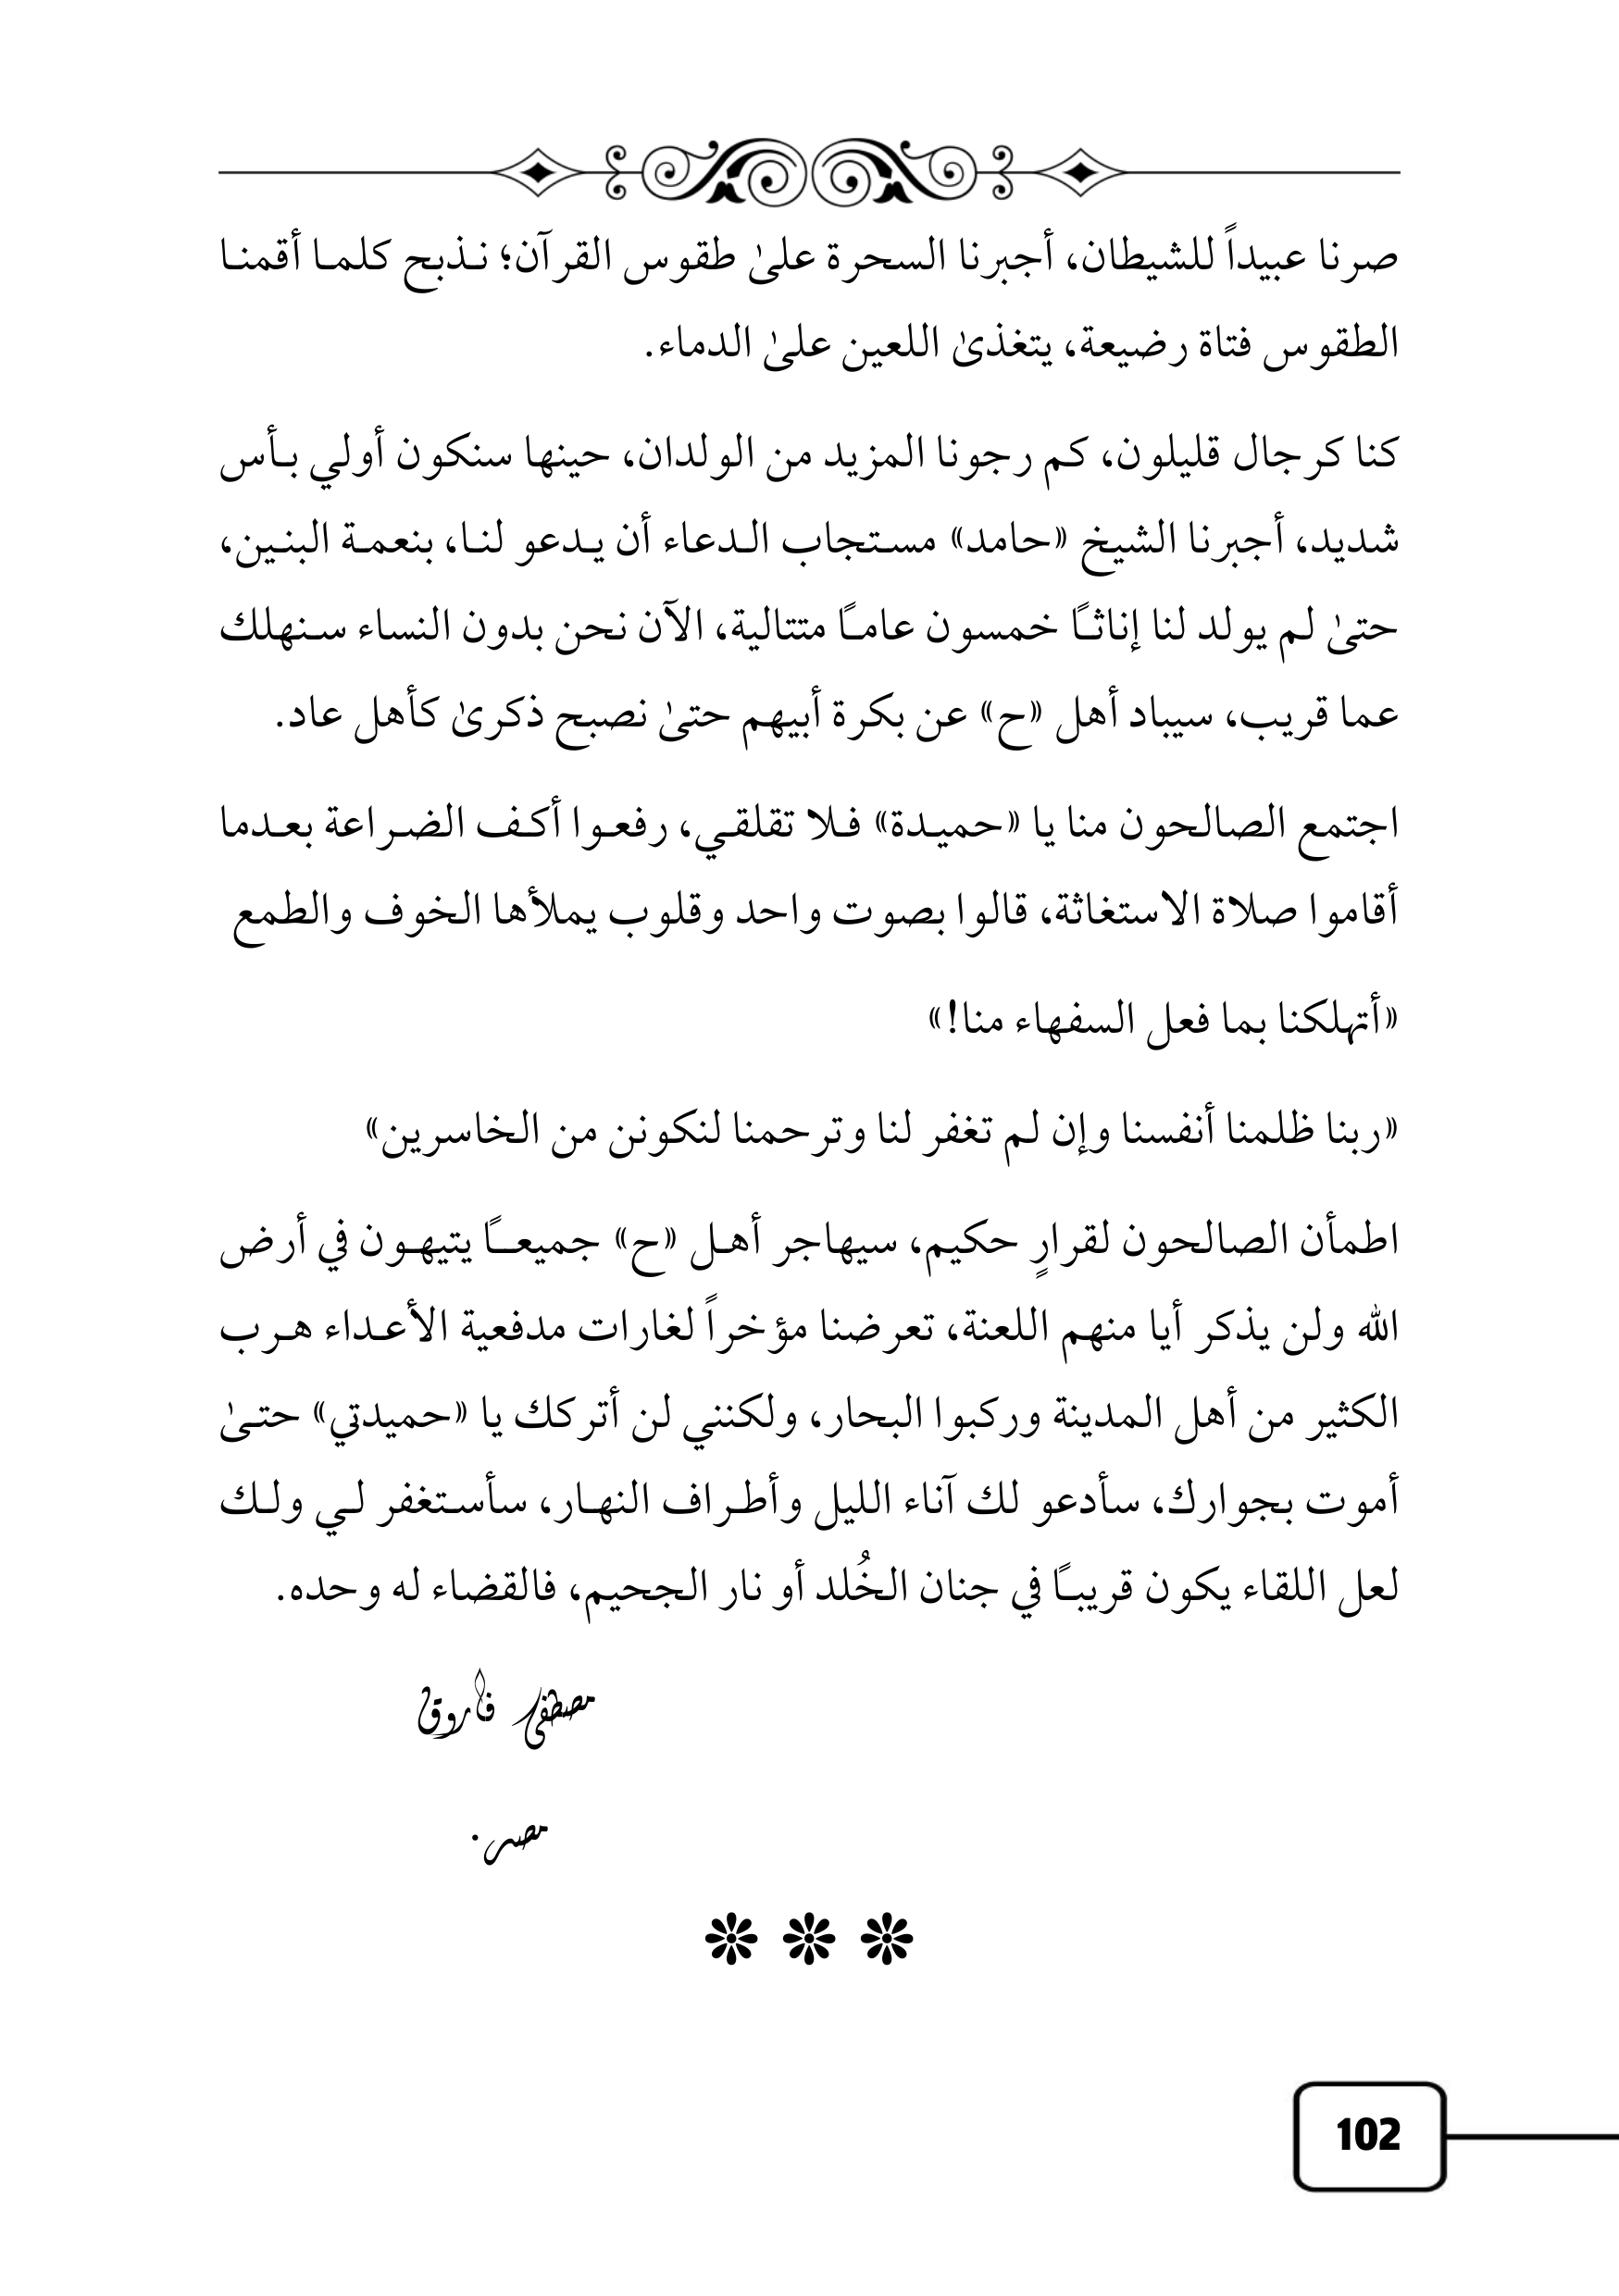 صرنا عبيداً للشيطان، أجبرنا السحرة علىٰ طقوس القرآن؛ نـذبح كلمـا أقمنـا
الطقوس فتاة رضيعة، يتغذىٰ اللعين علىٰ الدماء.
كنا كرجال قليلون، كم رجونا المزيد من الولدان، حينها سنكون أولي بـأس
شديد، أجبرنا الشيخ «حامد» مسـتجاب الـدعاء أن يـدعو لنـا، بنعمـة البنـين،
حتىٰ لم يولد لنا إناثـًا خمسون عامـًا متتالية، الآن نحن بدون النساء سـنهلك
عما قريب، سيباد أهل «ح» عن بكرة أبيهم حتىٰ نصبح ذكرىٰ كأهل عاد.
اجتمع الصالحون منا يا «حميـدة» فـلا تقلقـي، رفعـوا أكـف الضـراعة بعـدما
أقاموا صلاة الاستغاثة، قالوا بصوت واحد وقلوب يملأها الخوف والطمع
«أتهلكنا بما فعل السفهاء منا!»
«ربنا ظلمنا أنفسنا وإن لم تغفر لنا وترحمنا لنكونن من الخاسرين»
اطمأن الصالحون لقرارٍ حكيم، سيهاجر أهـل «ح» جميعــًا يتيهـون في أرض
الله ولن يذكر أيا منهم اللعنة، تعرضنا مؤخراً لغارات مدفعية الأعـداء هـرب
الكثير من أهل المدينة وركبوا البحار، ولكنني لن أتركك يا «حميدتي» حتـىٰ
أموت بجوارك، سأدعو لك آناء الليل وأطـراف النهـار، سأسـتغفر لـي ولـك
لعل اللقاء يكون قريبـًا في جنان الخُلد أو نار الجحيم، فالقضاء له وحده.
مصطفى فاروق
مصر.
102